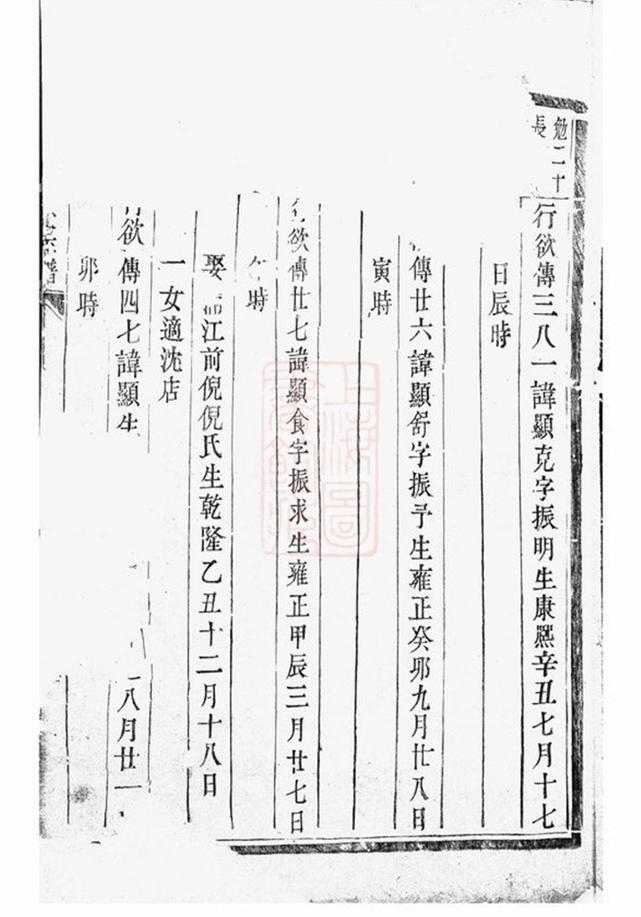 勉二十
長
行欲傳三八一諱顯克字振明生康熙辛丑七月十七
日辰時
傳廿六諱顯舒字振予生雍正癸卯九月廿八日
寅時
欲傳廿七諱顯食字振求生雍正甲辰三月廿七日
時
娶江前倪倪氏生乾隆乙丑十二月十八日
一女適沈店
欲傳四七諱顯生八月廿一
卯時
宗譜
上海圖